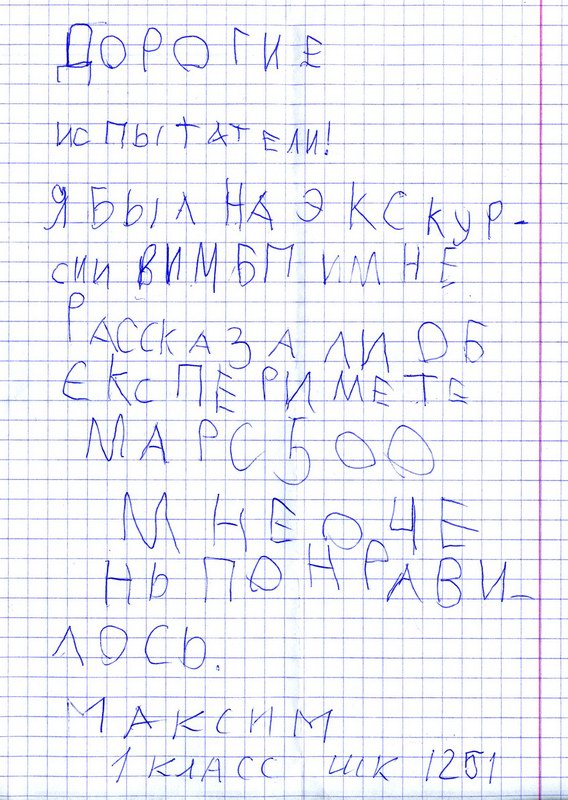 ДОРОГИЕ
ИСПЫТАТЕЛИ!
Я БЫЛ НА ЭКСКУР-
СИИ ВИМБП ИМНЕ
РАССКАЗАЛИ ОБ
ЕКСПЕРИМЕТЕ
МАРС500
МНЕ ОЧЕ
НЬ ПОНРАВИ-
ЛОСЬ.
МАКСИМ
1 КЛАСС ШК 1251